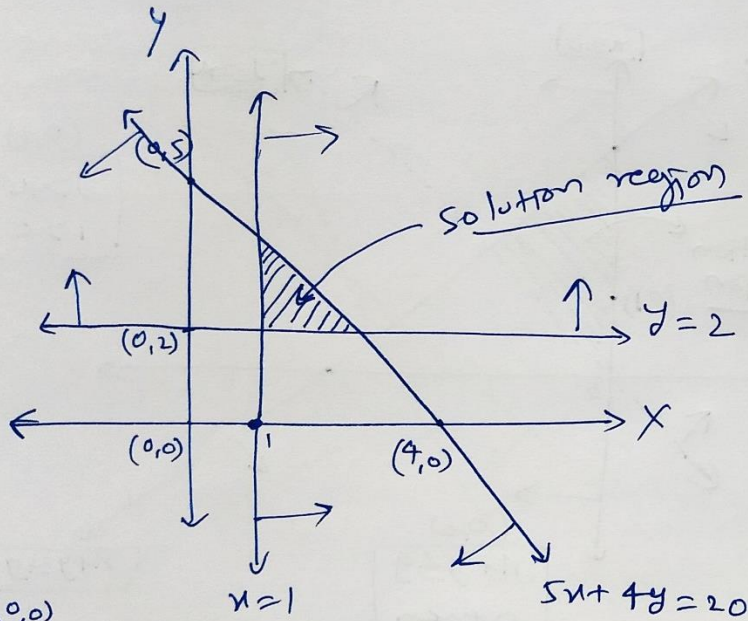 Y
(0,5)
solution region
(0,2)
y=2
(0,0)
1
(4,0)
X
0,0)
x=1
5x+4y=20